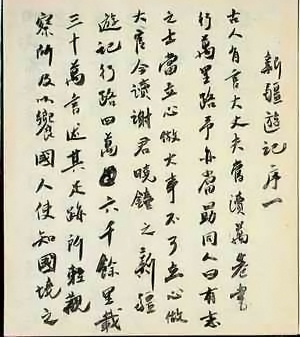 新疆遊記序一
古人有言大丈夫當讀萬卷書
行萬里路予亦嘗勗同人曰有志
之士當立心做大事不可立心做
大官今讀謝君曉鐘之新疆
遊記行路四萬六千餘里載
三十萬言述其足跡所經觀
察所及以饗國人使知國境之